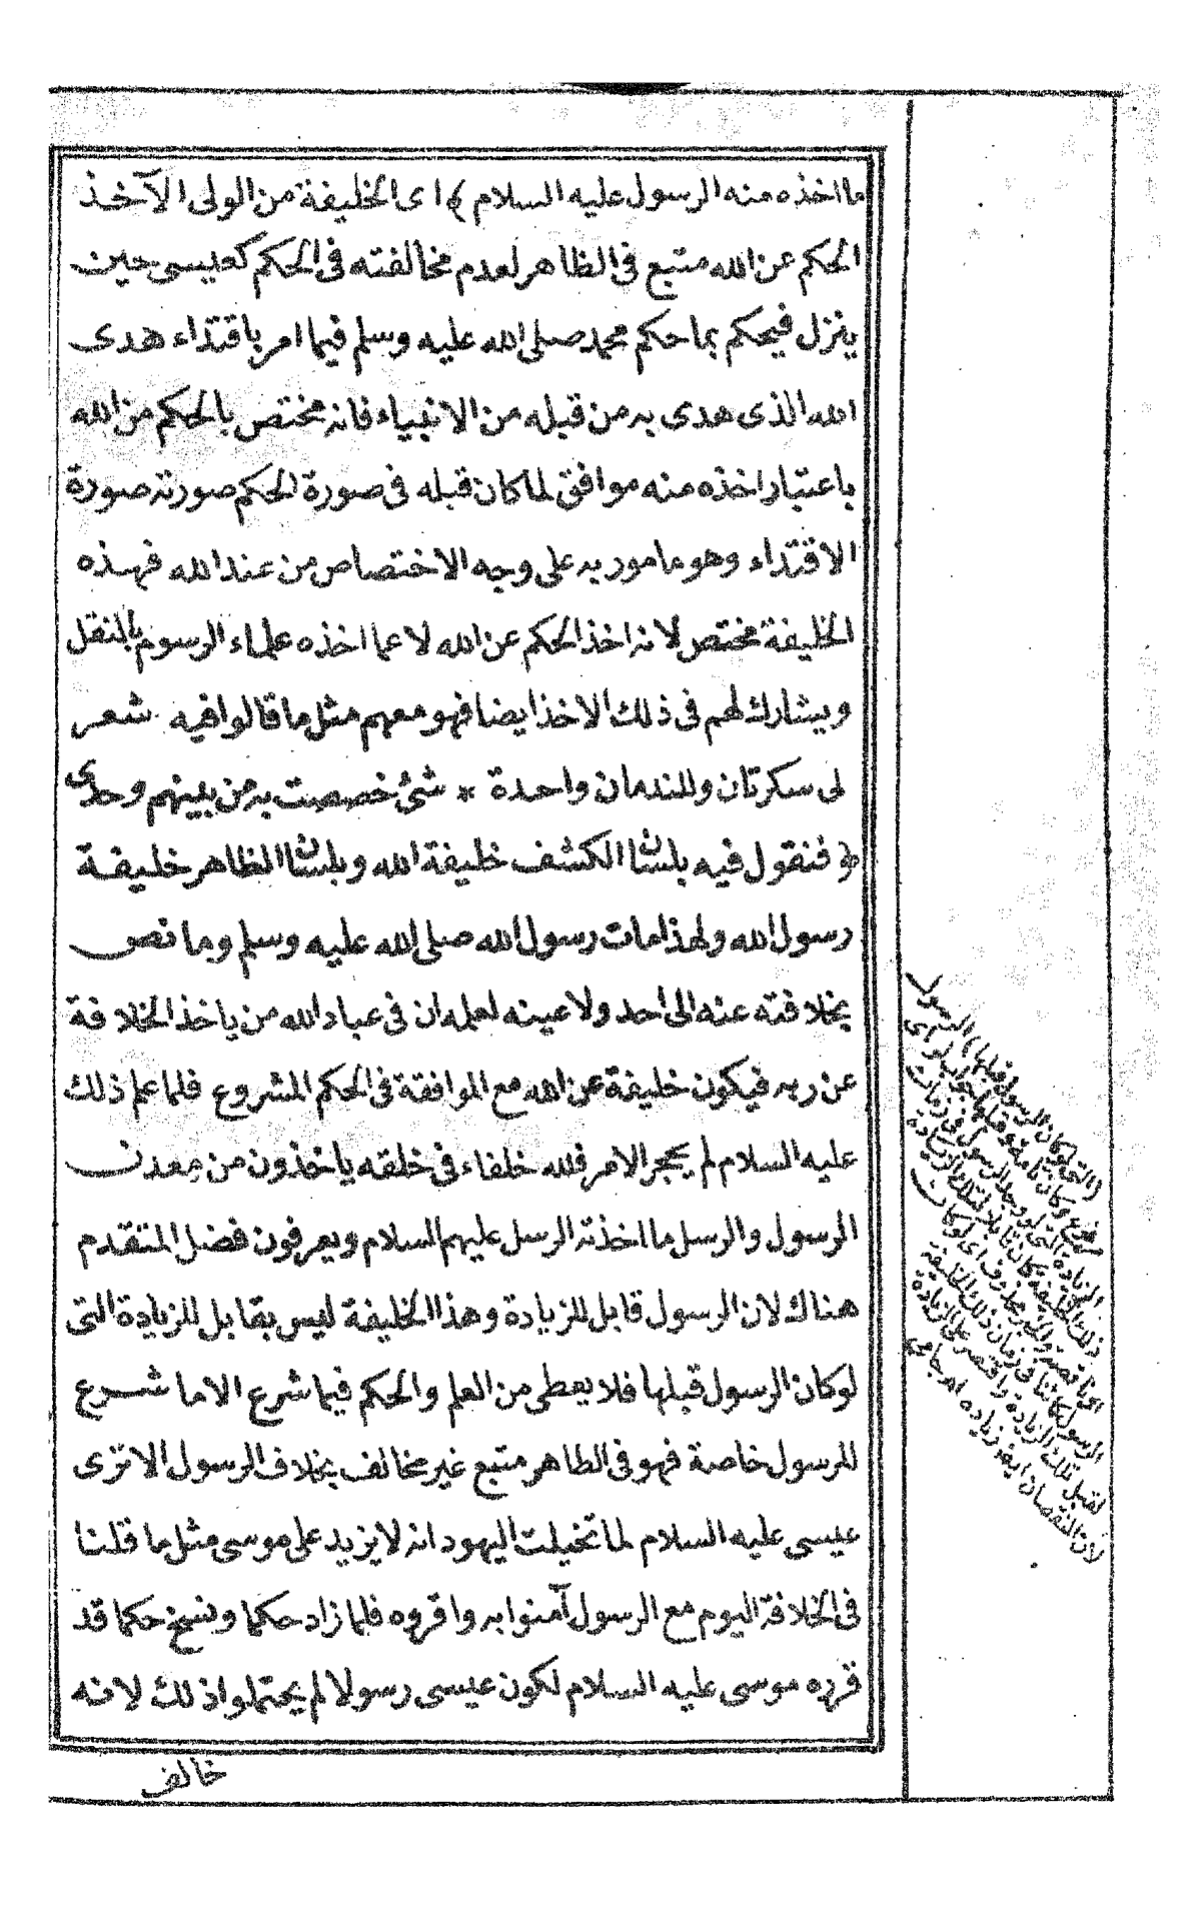 ما اخذه منه الرسول عليه السلام ﴾ اى الخليفة من الولى الآخذ
الحكم عن الله متبع فى الظاهر لعدم مخالفته فى الحكم كعيسى حين
ينزل فيحكم بما حكم محمد صلى الله عليه وسلم فيما امر باقتداء هدى
الله الذى هدى به من قبله من الانبياء فانه مختص بالحكم من الله
باعتبار اخذه منه موافق لما كان قبله فى صورة الحكم صورته صورة
الاقتداء وهو مامور به على وجه الاختصاص من عند الله فهذه
الخليفة مختص لانه اخذ الحكم عن الله لا عما اخذه علماء الرسوم بالنقل
ويشارك لهم فى ذلك الاخذ ايضا فهو معهم مثل ما قالوا فيه شعر
لى سكرتان وللندمان واحدة * شئ خصصت به من بينهم وحدى
﴿ فنقول فيه بلسان الكشف خليفة الله وبلسان الظاهر خليفة
رسول الله ولهذا مات رسول الله صلى الله عليه وسلم وما نص
بخلافته عنه الى احد ولا عينه لعلمه ان فى عباد الله من ياخذ الخلافة
عن ربه فيكون خليفة عن الله مع الموافقة فى الحكم المشروع فلما علم ذلك
عليه السلام لم يحجر الامر فلله خلفاء فى خلقه ياخذون من معدن
الرسول والرسل ما اخذته الرسل عليهم السلام ويعرفون فضل المتقدم
هناك لان الرسول قابل للزيادة وهذا الخليفة ليس بقابل للزيادة التى
لو كان الرسول قبلها فلا يعطى من العلم والحكم فيما شرع الا ما شرع
للرسول خاصة فهو فى الظاهر متبع غير مخالف بخلاف الرسول الا ترى
عيسى عليه السلام لما تخيلت اليهود انه لا يزيد على موسى مثل ما قلنا
فى الخلافة اليوم مع الرسول آمنوا به واقروه فلما زاد حكما ونسخ حكما قد
قرره موسى عليه السلام لكون عيسى رسولا لم يحتملوا ذلك لانه
خالف
(التى لو كان الرسول قبلها) الرسول
لقبل تلك الزيادة واقتصر على الزيادة
لان النقصان ايضا زياده